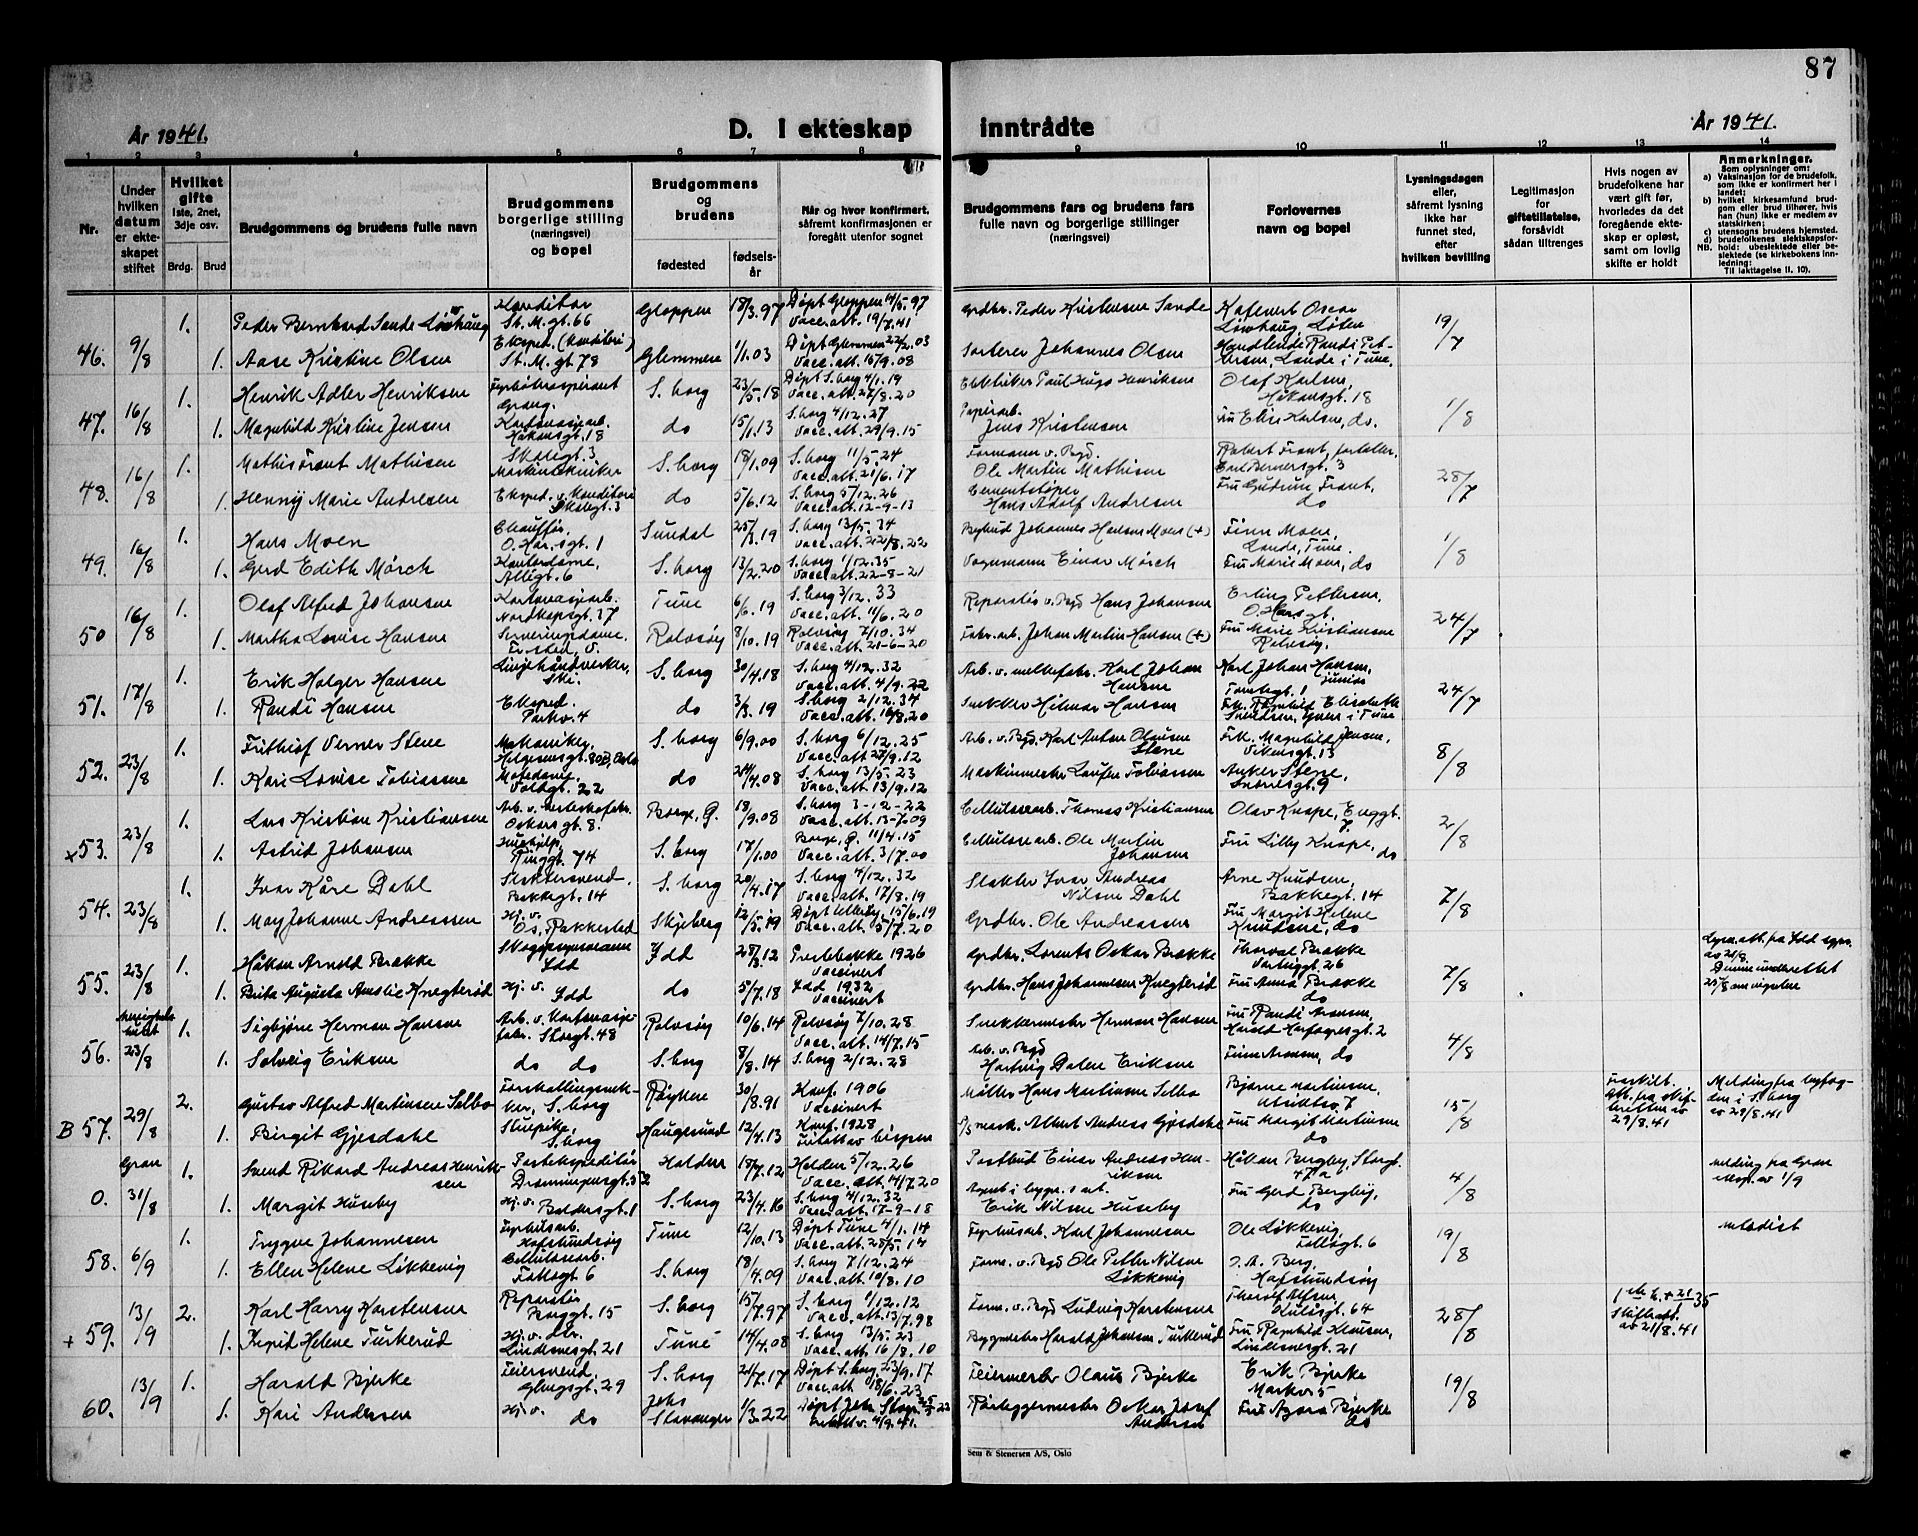 87
År 1941.
D. I ekteskap inntrådte
År 1941.
1 2 3 4 5 6 7 8 9 10 11 12 13 14
Nr.
Under hvilken datum er ekteskapet stiftet
Hvilket gifte
1ste, 2net, 3dje osv.
Brdg. Brud
Brudgommens og brudens fulle navn
Brudgommens borgerlige stilling (næringsvei) og bopel
Brudgommens og brudens
fødested
fødselsår
Når og hvor konfirmert, såfremt konfirmasjonen er foregått utenfor sognet
Brudgommens fars og brudens fars
fulle navn og borgerlige stillinger
(næringsvei)
Forlovernes navn og bopel
Lysningsdagen eller, såfremt lysning ikke har funnet sted, efter hvilken bevilling
Legitimasjon for giftetillatelse, forsåvidt sådan tiltrenges
Hvis nogen av brudefolkene har vært gift før, hvorledes da det foregående ekteskap er opløst, samt om lovlig skifte er holdt
Anmerkninger.
Som oplysninger om:
a) Vaksinasjon for de brudefolk, som ikke er konfirmert her i landet;
b) hvilket kirkesamfund brudgom eller brud tilhører, hvis han (hun) ikke er medlem av statskirken;
c) utensogns brudens hjemsted.
d) brudefolkenes slektskapsforhold: ubeslektede eller beslektede (se kirkebokens innledning:
NB. Til iakttagelse II. 10).
46. 9/8 1. Peder Bernhard Sande Løvhaug Konditor St. M. gt. 66 Gloppen 18/3.97 Døpt Gloppen 14/5.97 Vacc. att. 19/7.41 Grdbr. Peder Kristensen Sande Oscar Løvhaug, Løten 19/7
1. Aase Kristine Olsen Eksped. (konditori) St. M. gt. 78 Glemmen 1/1.03 Døpt Glemmen 22/2.03 Vacc. att. 15/9.08 Sorterer Johannes Olsen Handlende Randi Petersen, Lande i Tune,
47. 16/8 1. Henrik Adler Henriksen S. borg 23/5.18 Døpt S. borg 4/1.19 Vacc. att. 27/8.20 Paul Hugo Henriksen Olaf Karlsen, Håkonsgt. 18 1/8
1. Magnhild Kristine Jensen Kartonasjearb. Håkonsgt. 18 do 15/1.13 S. borg 4/12.27 Vacc. att. 29/9.15 Papirarb. Jens Kristensen Fru Elise Karlsen, do.
48. 16/8 1. Mathis Trant Mathisen Skolegt. 3, Maskintekniker S. borg 18/1.09 S. borg 11/5.24 Vacc. att. 21/6.17 Formann v. Bgd. Ole Martin Mathisen Robert Trant, forteller, Carl Bernersgt. 3 28/7
1. Henny Marie Andresen Eksped. v. konditori Skolegt. 3 do 5/6.12 S. borg 5/12.26 Vacc. att. 12-9-13 Cementstøper Hans Adolf Andresen Fru Gudrun Trant, do
49. 16/8 1. Hans Moen Chauffør, O. Har. sgt. 1 Sundal 25/3.19 S. borg 13/5.34 Vacc. att. 22/8.22 Johannes Hansen Moen (+) Finn Moen, Lande, Tune. 1/8
1. Gerd Edith Mørch Kontordame, Allégt. 6 S. borg 13/2.20 S. borg 1/12.35 Vacc. att. 22-8-21 Vognmann Einar Mørch Fru Marie Moen, do
50 16/8 1. Olaf Alfred Johansen Kartonasjearb. Nordkapsgt. 37 Tune 6/6.19 S. borg 3/12.33 Vacc. att. 11/6.20 Reparatør v. Bgd Hans Johansen Erling Pettersen, O. Hars gt. 24/7
1. Martha Lovise Hansen Serveringsdame, Rolvsøy 8/10.19 Rolvsøy 7/10.34 Vacc. att. 21-6-20 Fabr. arb. Johan Martin Hansen (+) Fru Marie Kristiansen Rolvsøy,
51. 17/8 1. Erik Holger Hansen Linjehåndverker, Ski. S. borg 30/4.18 S. borg 4/12.32 Vacc. att. 4/9.22 Arb. v. melkefabr. Karl Johan Hansen Karl Johan Hansen, junior Tomtegt. 1 24/7
1. Randi Hansen Eksped. Parkv. 4 do 3/3.19 S. borg 2/12.34 Vacc. att. 16/8.20 Snekker Hilmar Hansen Frk. Ragnhild Elisabeth Svendsen, i Tune
52. 23/8 1. Frithiof Verner Stene Mekaniker, Helgesensgt. 80B, Oslo S. borg 6/9.00 S. borg 6/12.25 Vacc. att. 27/9.12 Arb. v. Bgd. Karl Anton Olausen Stene Frk. Magnhild Jensen, Vikensgt. 13 8/8
1. Kari Lovise Tobiassen Motedame, Voldgt. 22 do 24/4.08 S. borg 13/5.23 Vacc. att. 13/9.12 Maskinmester Laufen Tobiassen Anker Stene, Snorresgt. 9
x 53. 23/8 1. Lars Kristian Kristiansen Oscars gt. 8. Borge, Ø. 18/9.08 S. borg 3-12-22 Vacc. att. 13-7-09 Cellulosearb. Thomas Kristiansen Olav Knape, Enggt. 7. 2/8
1. Astrid Johansen Hushjelp, Tinggt. 74 S. borg 17/1.00 Borge, Ø. 11/4.15 Vacc. att. 3/7.00 Cellulosearb. Ole Martin Johansen Fru Lilly Knape, do
54. 23/8 1. Ivar Kåre Dahl Slaktersvend. Bakkegt. 14 S. borg 20/4.17 S. borg 4/12.32 Vacc. att. 17/8.19 Slakter Ivar Andreas Nilsen Dahl Arne Knudsen, Bakkegt. 14 7/8
1. May Johanne Andreassen Hj. v. Os, Rakkestad Skjeberg 12/5.19 Døpt Ullerøy, 15/6.19 Vacc. att. 5/7.20 Grdbr. Ole Andreassen Fru Margit Helene Knudsen, do
55. 23/8 1. Håkon Arnold Brække Skogassymann Idd 28/3.12 Prestebakke 1926 Vaccinert Grdbr. Lorents Oskar Brække Thorval Brække Varteiggt. 26 7/8 Lysn. att. fra Idd av 21/8. Denne underrettet 25/8 om vigselen
1. Brita Augusta Amalie Knegterød Hj. v. Idd do 5/7.18 Idd 1932 Vaccinert Grdbr. Hans Johannesen Knegterød Fru Anna Brække do
56. 23/8 1. Sigbjørn Herman Hansen Arb. v. kartonasjefabr. Storgt. 48 Rolvsøy 10/6.14 Rolvsøy 7/10.28 Vacc. att. 14/7.15 Snekkermester Herman Hansen Fru Randi Aronsen, Harald Hårfagresgt. 2 4/8
1. Solveig Eriksen do do S. borg 8/8.14 S. borg 2/12.28 Arb. v. Bgd Hartvig Dalen Eriksen Finn Aronsen, do
B 57. 29/8 2. Gustav Alfred Martinsen Solbo S. borg Røyken 30/8.91 Konf. 1906 Vaccinert Møller Hans Martinsen Solbo Bjarne Martinsen, Utsiktsv. 7 15/8 Fraskilt. Att. fra skifteretten av 29/8.41 Melding fra byfogden i S. borg av 29/8.41
1. Birgit Gjesdahl S. borg Haugesund 12/4.13 Konf. 1928 Fritatt av bispen Albert Andreas Gjesdahl Fru Margit Martinsen do
0. Gran 31/8 1. Svend Rikard Andreas Henriksen Postekspeditør Dronningensgt. 32 Halden 18/7.12 Halden 5/12.26 Vacc. att. 14/7.20 Postbud Einar Andreas Henriksen Håkon Bergby, Storgt. 47a 4/8 Melding fra Gran av 1/9
1. Margit Huseby Hj. v. Baldersgt. 1 S. borg 23/4.16 S. borg 4/12.32 Vacc. att. 17-9-18 Erik Nilsen Huseby Fru Gerd Bergby, do
58. 6/9 1. Trygve Johannesen Fyrhusarb. Hafslundsøy Tune 12/10.13 Døpt Tune 4/1.14 Vacc. att. 28/5.14 Fyrhusarb. Karl Johannesen Ole Løkkevig Tollsgt. 6 19/8 Metodist
1. Ellen Helene Løkkevig Cellulosearb. Tollsgt 6 S. borg 18/4.09 S. borg 7/12.24 Vacc. att. 10/8.10 Form. v. Bgd Ole Petter Nilsen Løkkevig J. A. Berg, Hafslundsøy
+ 59. 13/9 2. Karl Harry Karstensen Reparatør Borggt. 15 S. borg 15/7.97 S. borg 1/12.12 Vacc. att. 13/7.98 Form. v. Bgd Ludvig Karstensen Thorolf Olsen Kulåsgt. 64 28/8 1 ekt. h. + 21/1 35 Skifteatt. av 21/8.41
1. Ingrid Helene Turkerud Hj. v. do. Lindemansgt. 21 Tune 14/4.08 S. borg 13/5.23 Vacc. att. 16/8.10 Byggmester Harald Johansen Turkerud Fru Ragnhild Klausen, Lindemansgt. 21
60. 13/9 1. Harald Bjerke Feiersvend, Glengsgt. 29 S. borg 21/7.17 Døpt S. borg 23/9.17 Vacc. att. 18/6.23 Feiermester Olaus Bjerke Erik Bjerke Markv. 5 19/8
1. Kari Andersen Hj. v. do Johs Stavanger 1/3.22 Døpt Joh. Stavgr. 22 Rørleggermester Oskar Josef Andersen Fru Agora Bjerke do
Sem & Stenersen A/S, Oslo